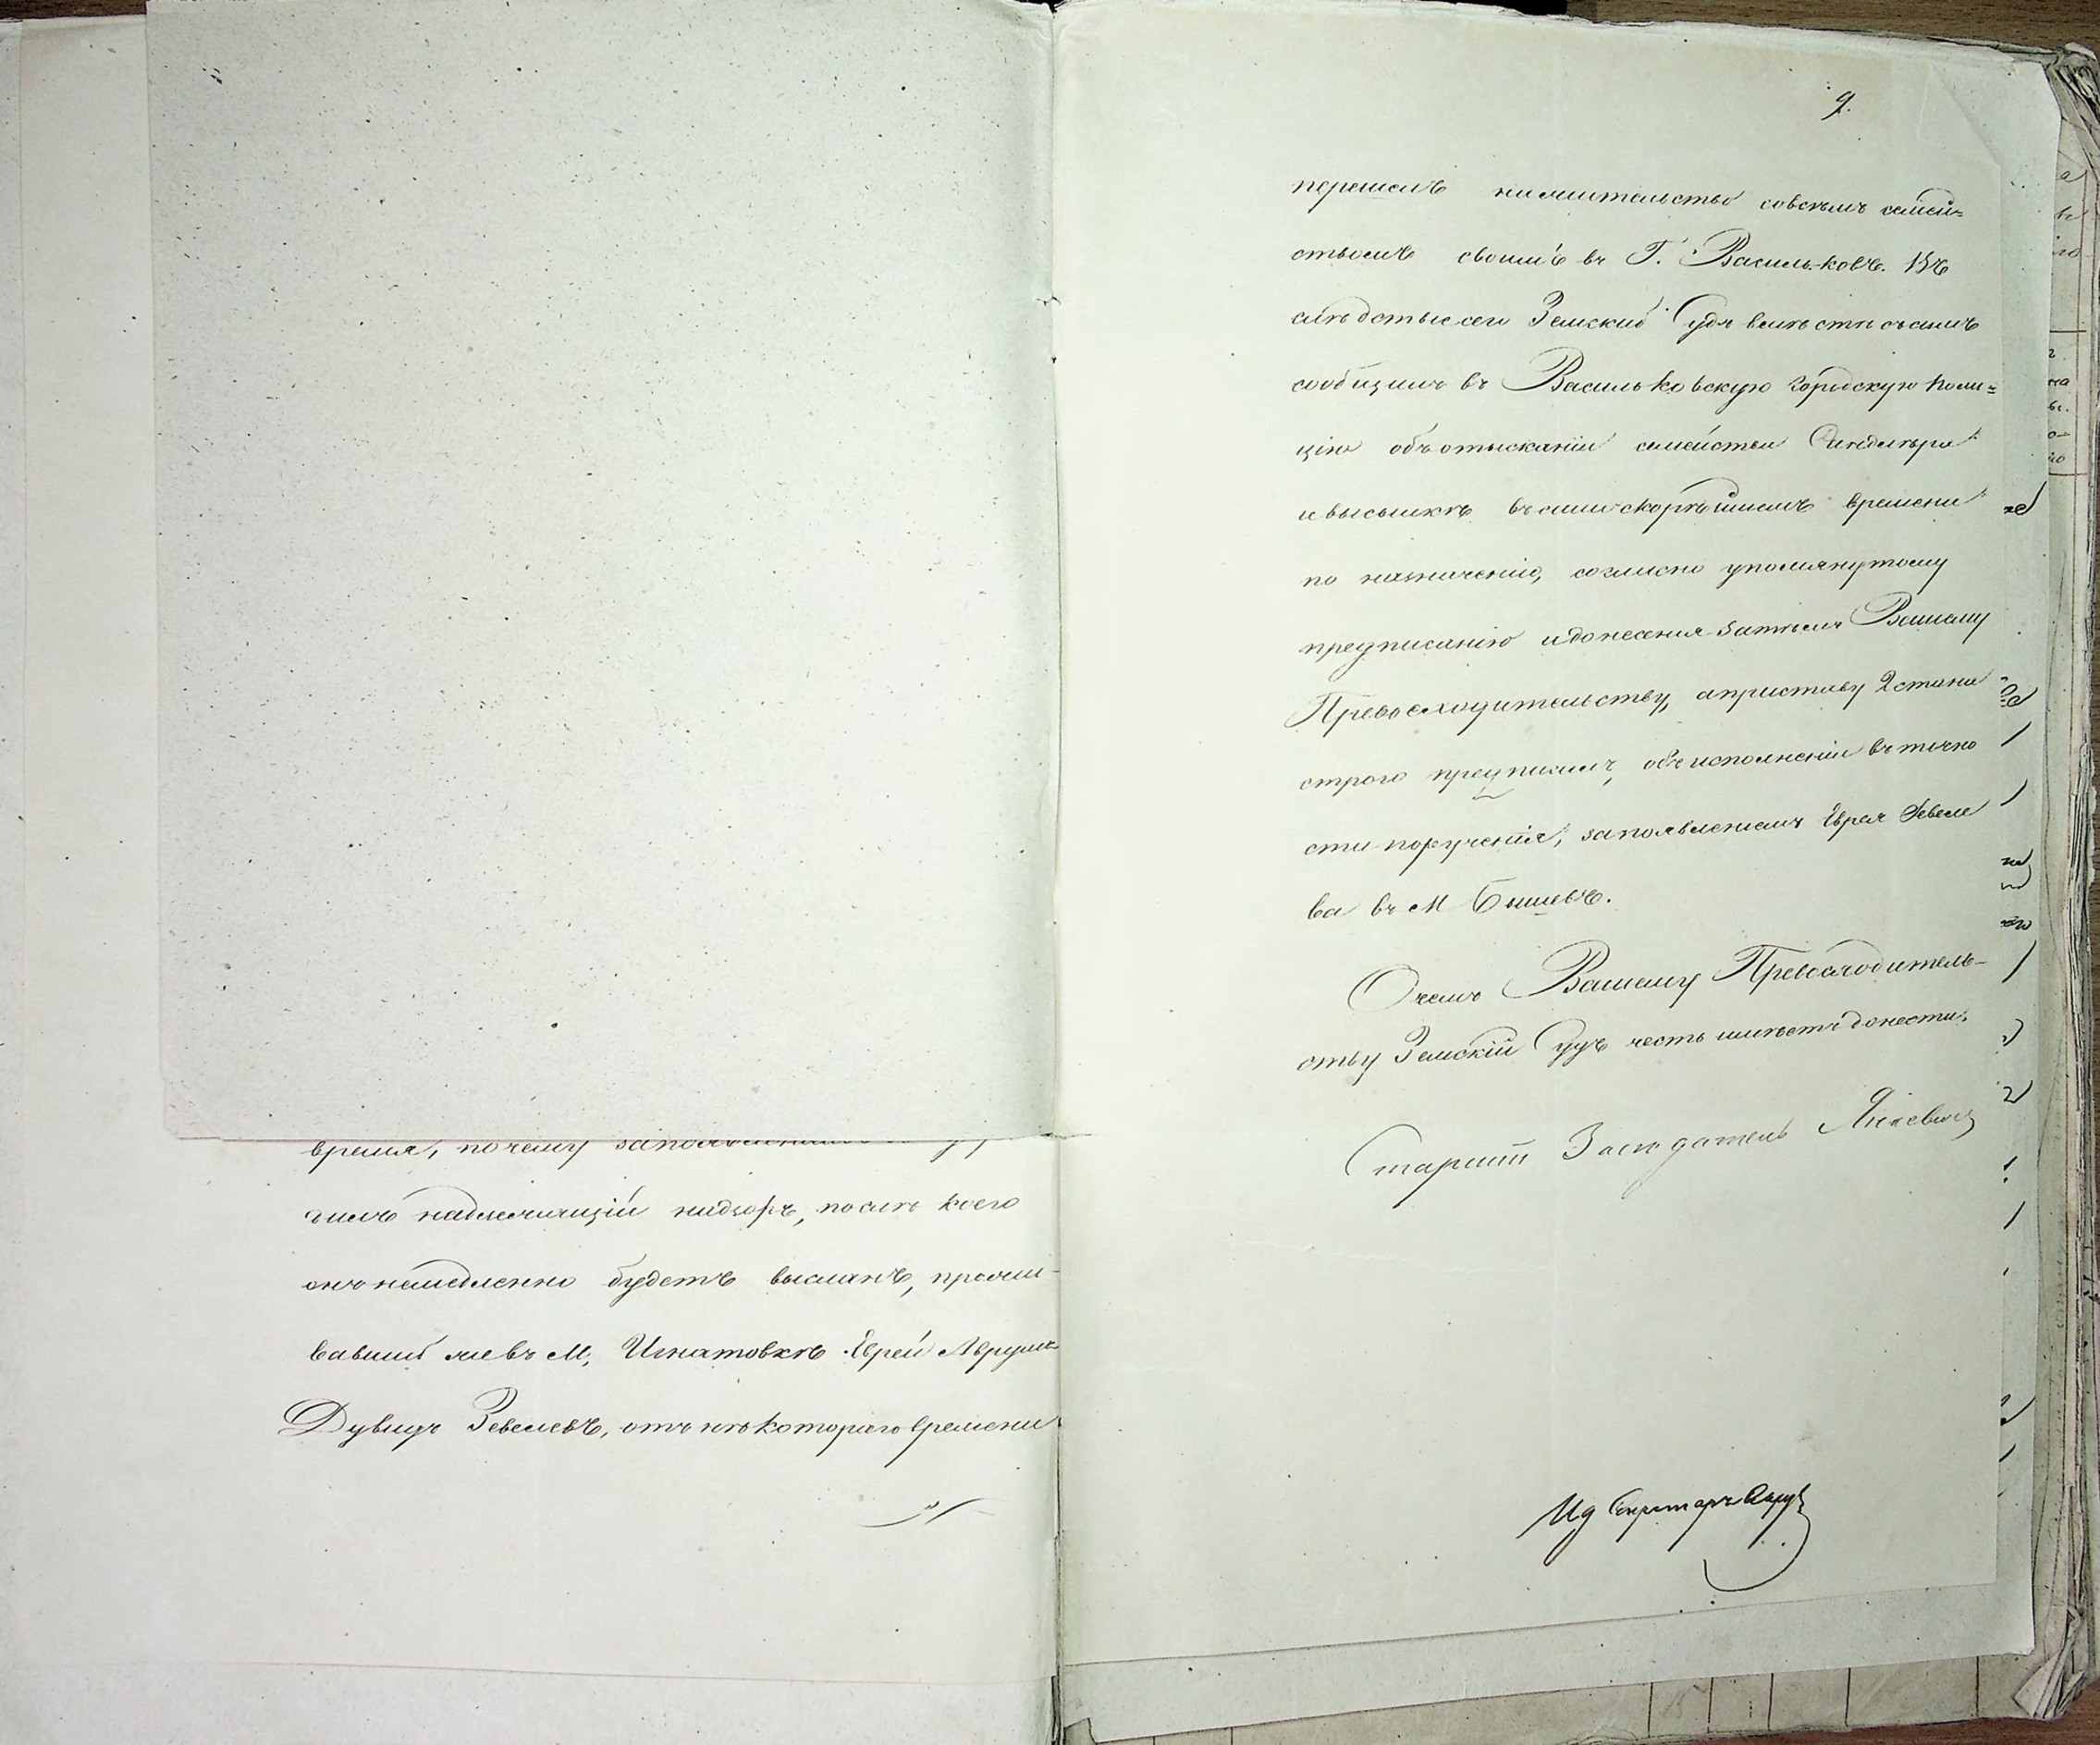 время, почему
гимъ надлежащій надзоръ, послѣ коего
онъ немедленно будетъ высланъ, прожи-
вавшій же въ М, Игнатовкѣ Еврей Аврумъ
Дувидъ Зевелевъ, отъ нѣкотораго времени
9.
перешелъ на жительство совсѣмъ семей=
ствомъ своимъ въ Г. Васильковъ. Въ
слѣдствіе сего Земскій Судъ вмѣстѣ съ симъ
сообщилъ въ Васильковскую Городскую Поли=
цію объ отысканіи семейства
и высылкѣ въ самоскорѣйшемъ времени
по назначенію, согласно упомянутому
предписанію и донесенія затѣмъ Вашему
Превосходительству, а приставу 2 стана
строго предписалъ, объ исполненіи въ точно
сти порученія, за появленіемъ Еврея Зевеле
ва въ М Бышевѣ.
О чемъ Вашему Превосходитель-
ству Земскій Судъ честь имѣетъ донести.
Старшій Засѣдатель
Ид Секретаря